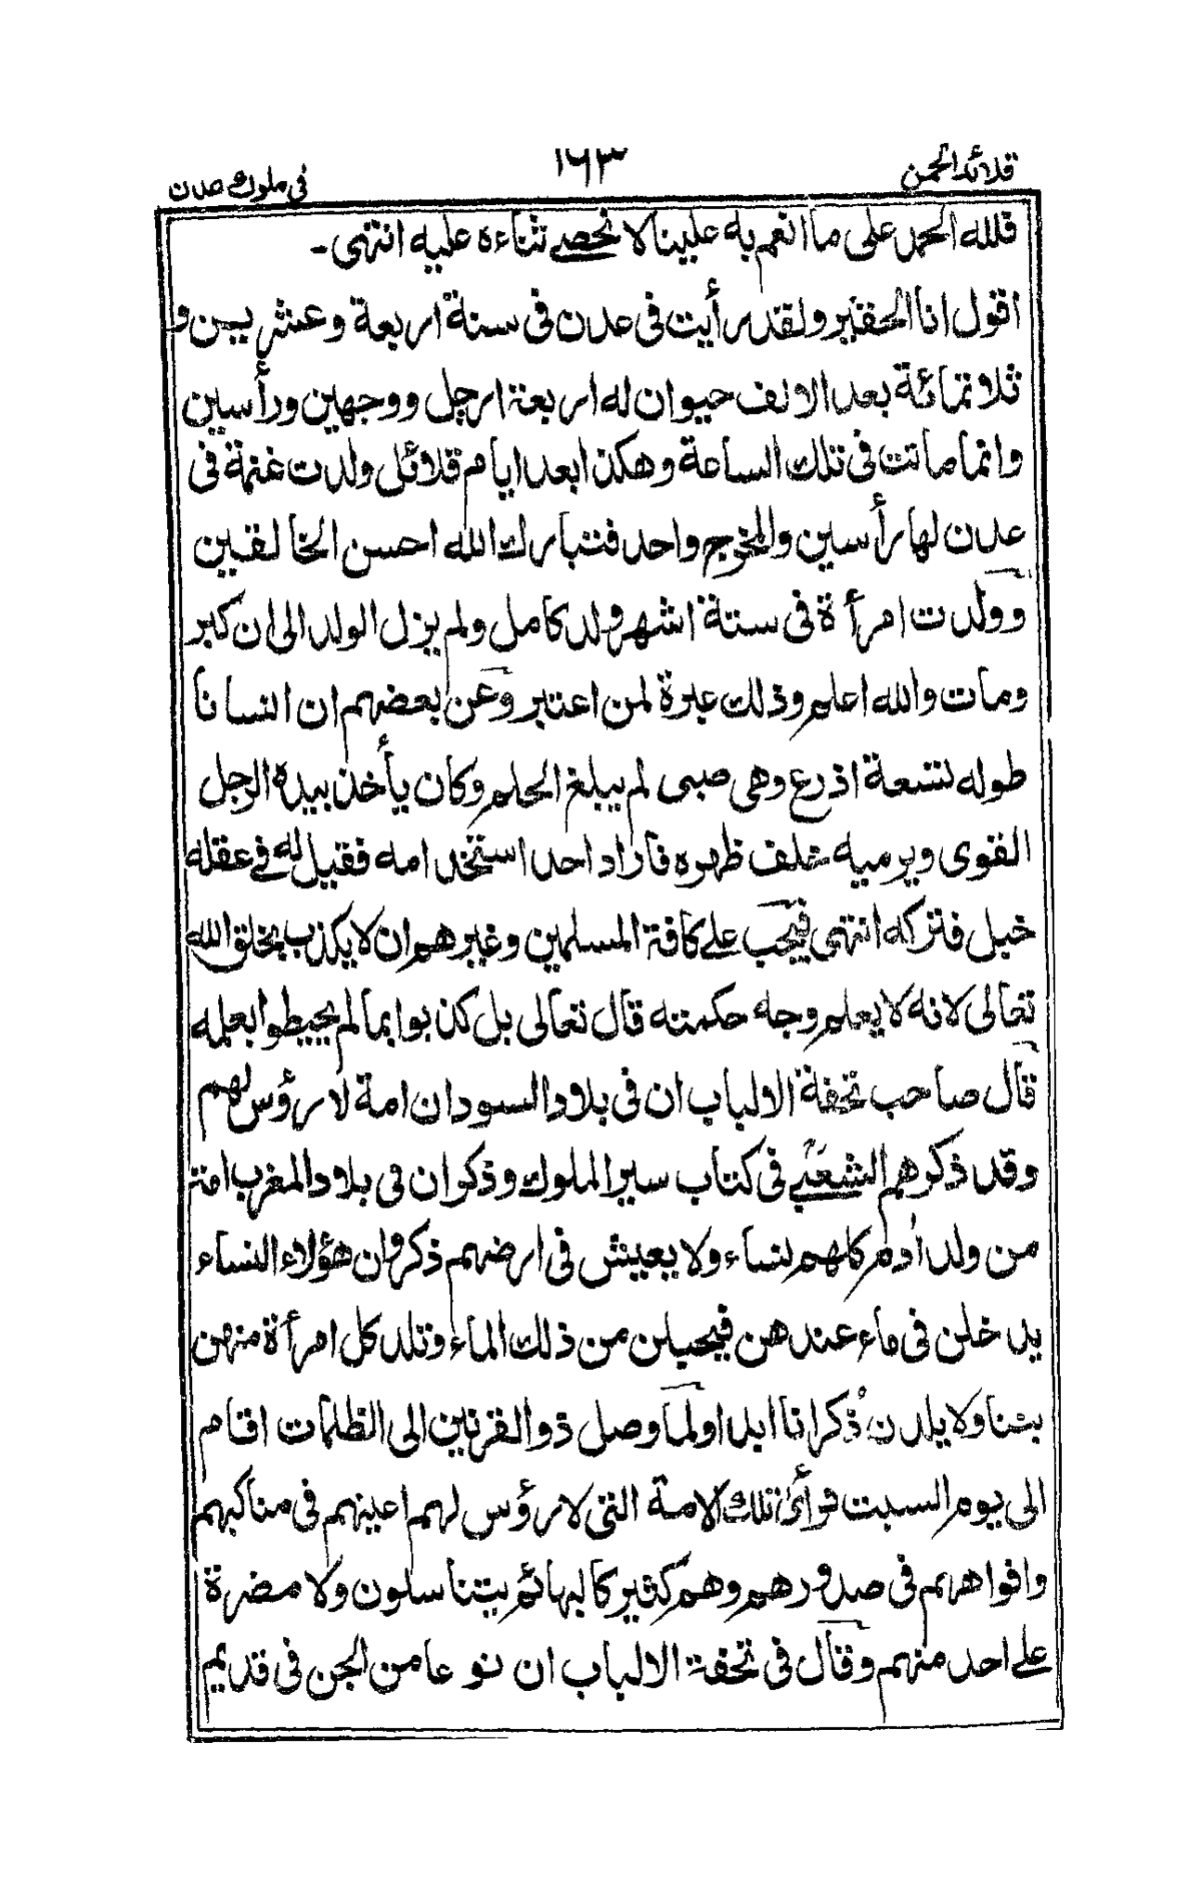 قلائد الجمن
١٦٣
فی ملوك عدن
فلله الحمد علی ما انعم به علینا لا نحصے ثناءه علیه انتهی ـ
اقول انا الحقیر ولقد رأیت فی عدن فی سنة اربعة وعشرین و
ثلاثمائة بعد الالف حیوان له اربعة ارجل ووجهین ورأسین
وانما ماتت فی تلك الساعة وهكذا بعد ایام قلائل ولدت غنمة فی
عدن لها رأسین والمخرج واحد فتبارك الله احسن الخالقین
وولدت امرأة فی ستة اشهر ولد كامل ولم یزل الولد الی ان كبر
ومات والله اعلم وذلك عبرة لمن اعتبر وعن بعضهم ان انسانا
طوله تسعة اذرع وهی صبی لم یبلغ الحلم وكان یأخذ بیده الرجل
القوی ویرمیه خلف ظهره فاراد احد استخدامه فقیل له فے عقله
خبل فتركه انتهی فیجب علے كافة المسلمین وغیرهم ان لا یكذب بخلق الله
تعالی لانه لا یعلم وجه حكمته قال تعالی بل كذبوا بما لم یحیطوا بعلمه
قال صاحب تحفة الالباب ان فی بلاد السودان امة لا رؤس لهم
وقد ذكرهم الشعبے فی كتاب سیر الملوك وذكر ان فی بلاد المغرب امة
من ولد اٰدم كلهم نساء ولا یعیش فی ارضهم ذكر وان هؤلاء النساء
یدخلن فی ماء عندهن فیحبلن من ذلك الماء وتلد كل امرأة منهن
بنتا ولا یلدن ذُكرانا ابدا ولما وصل ذو القرنین الی الظلمات اقام
الی یوم السبت فرأی تلك الامة التی لا رؤس لهم اعینهم فی مناكبهم
وافواههم فی صدورهم وهم كثیر كالبهائم یتناسلون ولا مضرة
علے احد منهم وقال فی تحفة الالباب ان نوعا من الجن فی قدیم